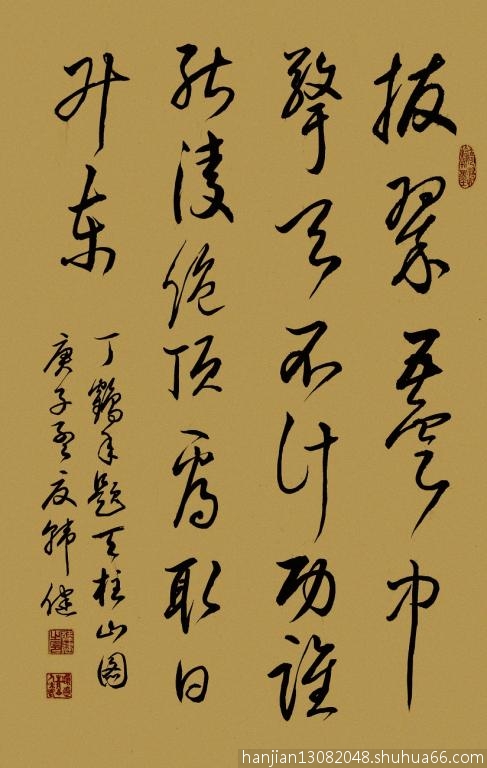 拔翠五云中
擎天不计功谁
能凌绝顶看取日
升东
丁鹤年题天柱山图
庚子孟夏韩健
hanjian13082048.shuhua66.com